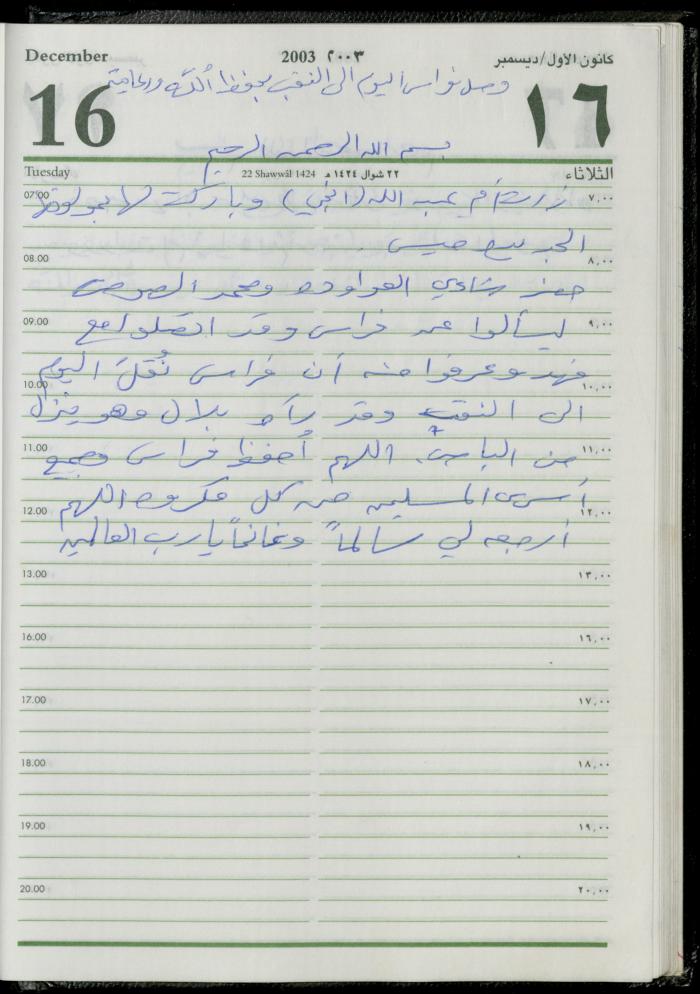 December 2003 ٢٠٠٣ كانون الاول/ديسمبر
وصل فراس اليوم الى النقب بحفظ الله ورعايته
16 ١٦
بسم الله الرحمن الرحيم
Tuesday 22 Shawwâl 1424 ٢٢ شوال ١٤٢٤ هـ الثلاثاء
07.00 زرت أم عبد الله (انجي) وباركت لها بمولودها ٧,٠٠
الجديد خميس
08.00 ٨,٠٠
حضر شادي العواوده ومحمد
09.00 ليسألوا عن فراس وقد اتصلوا مع ٩,٠٠
فهد وعرفوا منه أن فراس نُقلَ اليوم
10.00 ١٠,٠٠
الى النقب وقد رآه بلال وهو ينزل
11.00 من الباص. اللهم أحفظ فراس وجميع ١١,٠٠
أسرى المسلمين من كل مكروه اللهم
12.00 ١٢,٠٠
أرجعه لي سالماً وغانماً يا رب العالمين
13.00 ١٣,٠٠
16.00 ١٦,٠٠
17.00 ١٧,٠٠
18.00 ١٨,٠٠
19.00 ١٩,٠٠
20.00 ٢٠,٠٠